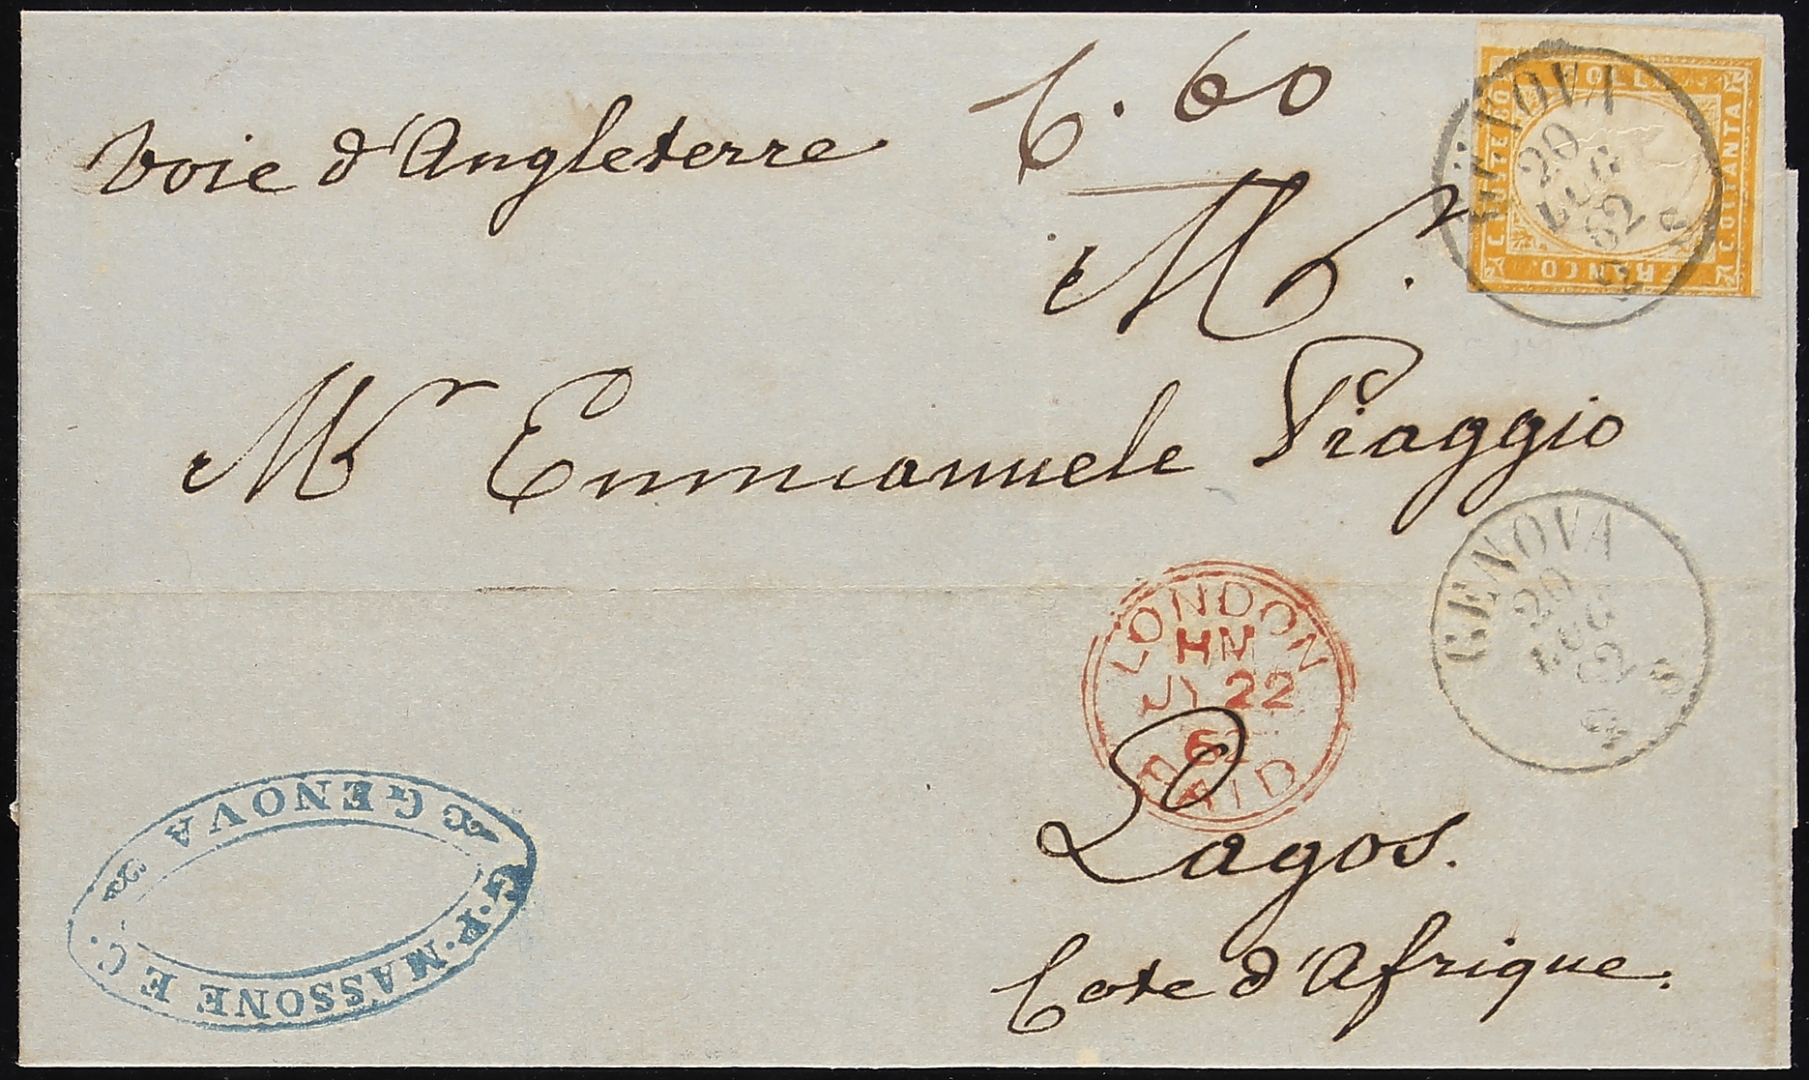 Voie d'Angleterre
C. 60
Mr.
Mr Emmanuele Piaggio
Lagos.
Cote d'Afrique.
BOLLO
C. OTTANTA
FRANCO
GENOVA
20
LUG
62
2 S
GENOVA
20
LUG
62
S
LONDON
HM
JY 22
62
PAID
G. P. MASSONE E C.
GENOVA